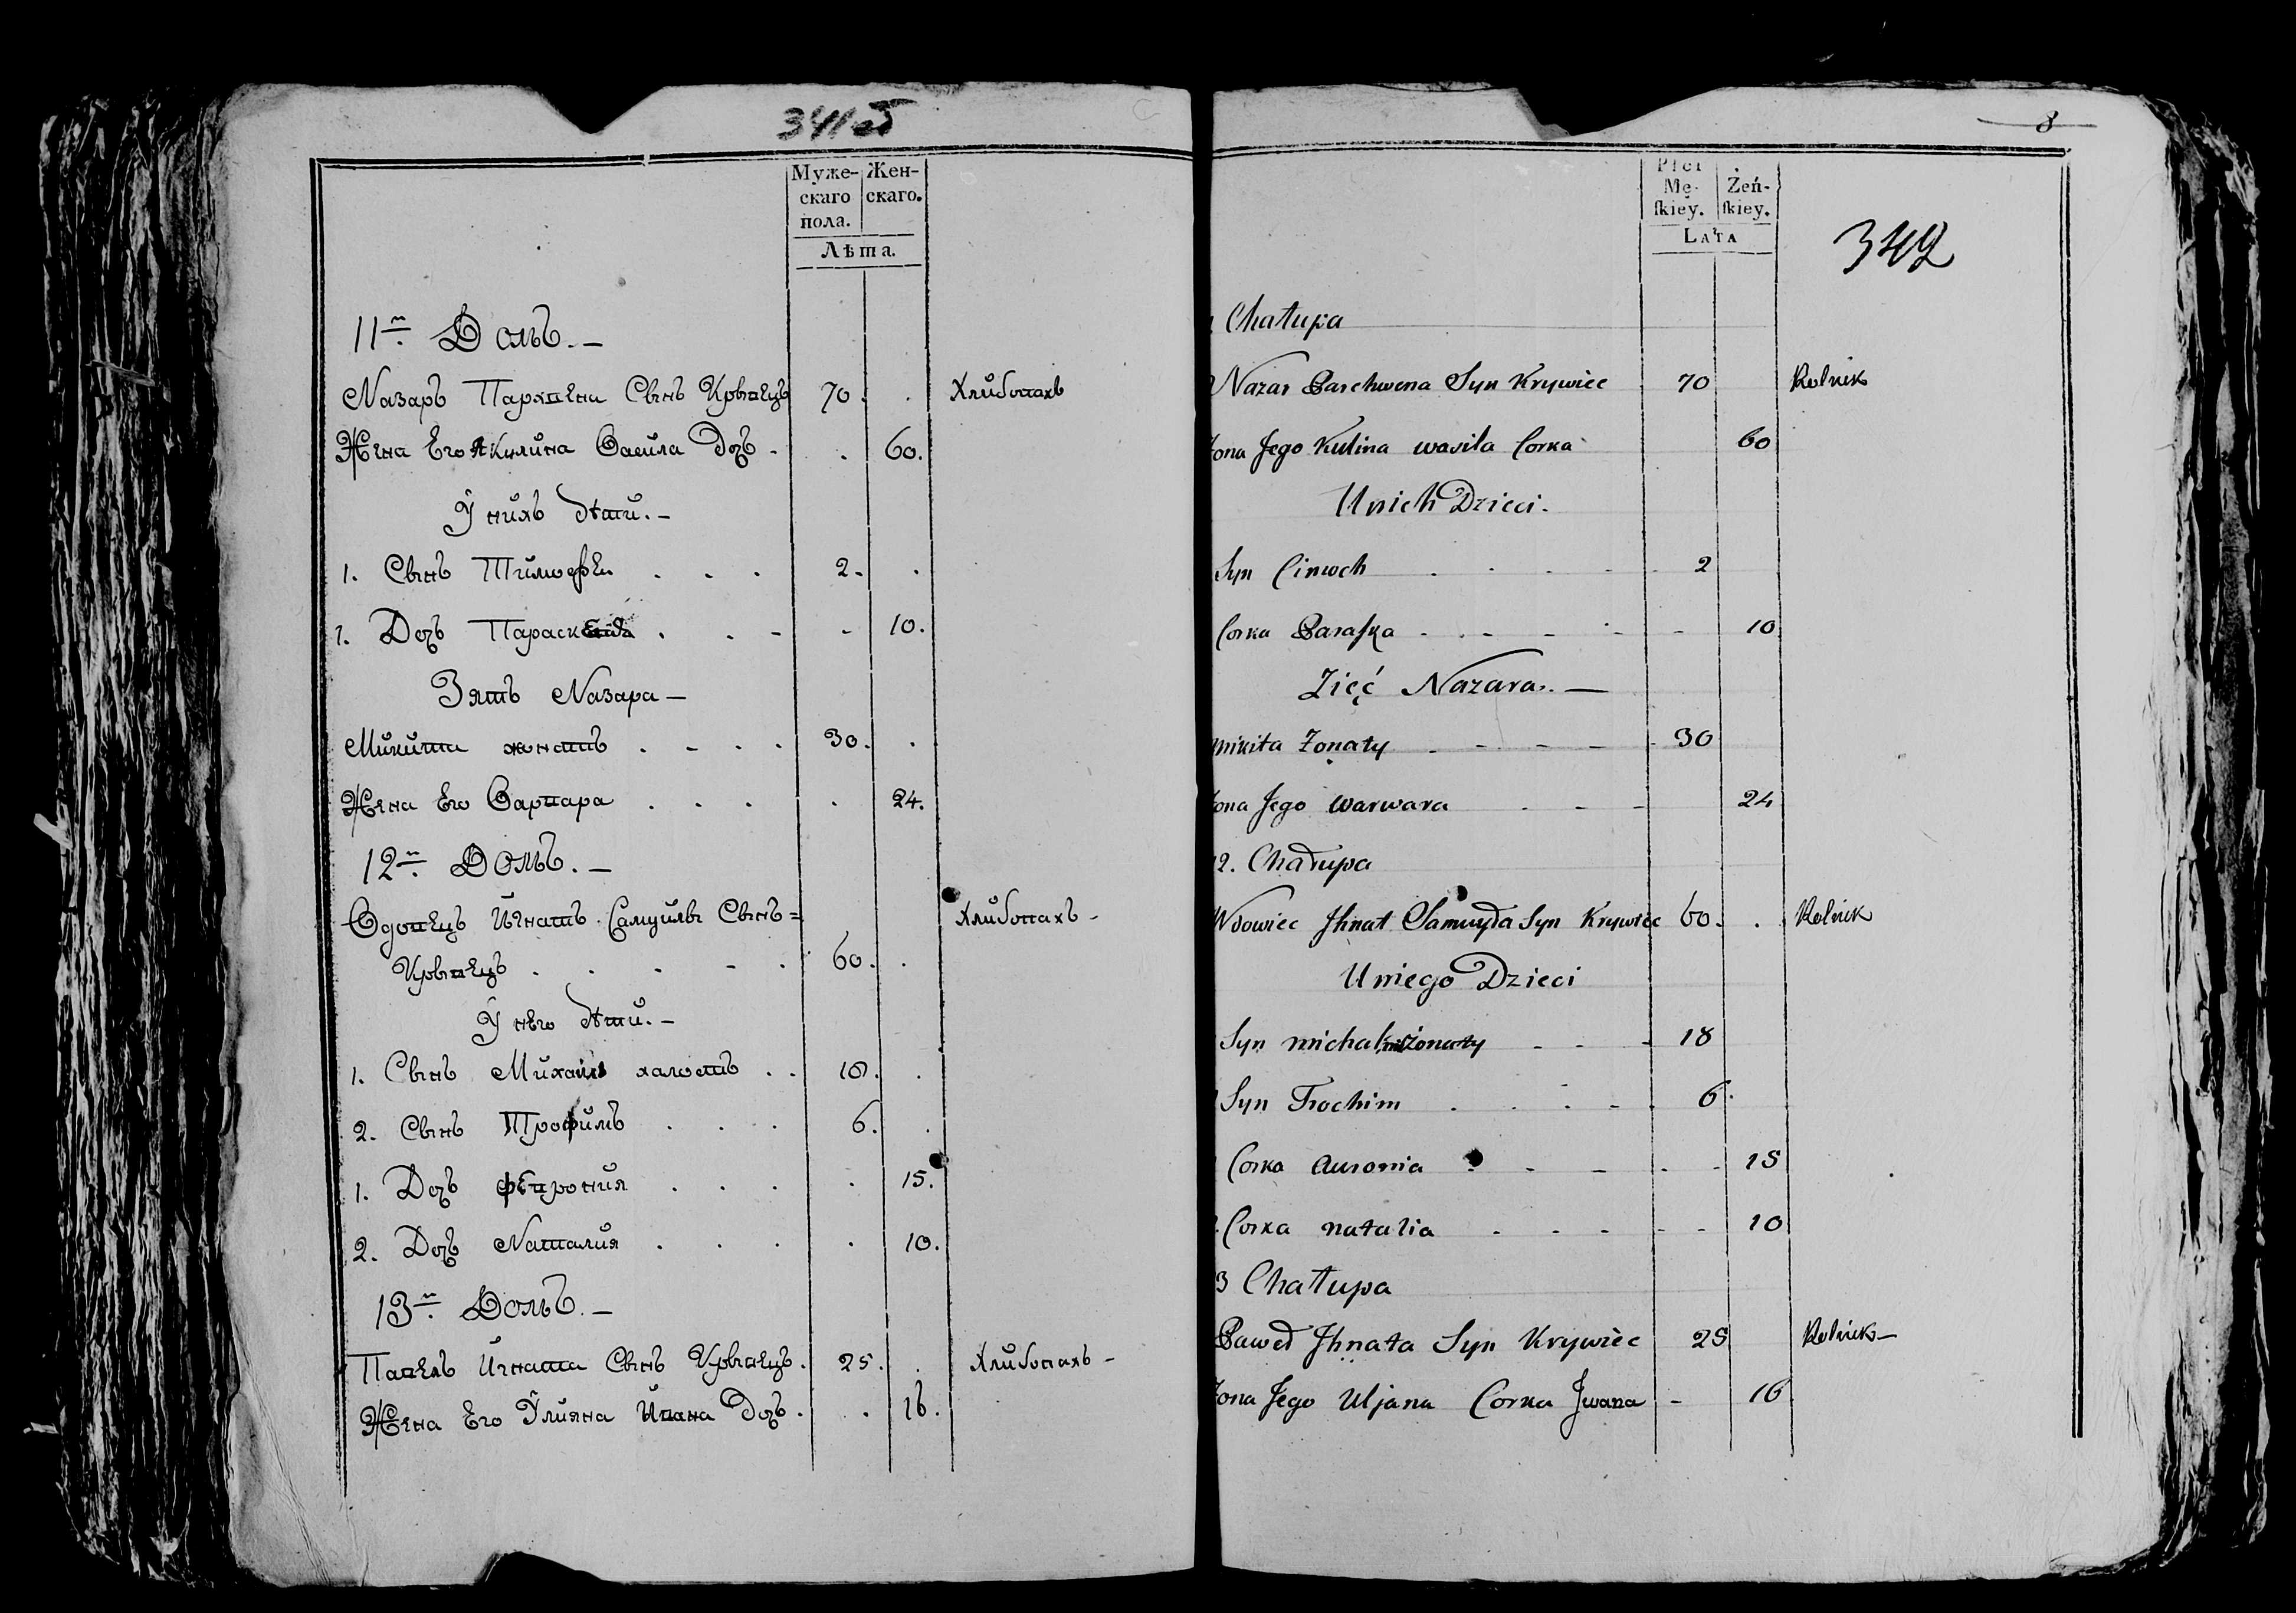 341об
Муже- Жен-
скаго скаго.
пола.
Лѣта.
11й. Домъ.-
Назаръ Пархвена Сынъ Крывецъ 70. . Хлибопахъ
Жена Его Акулина Васила Дочь . . 60.
У нихъ дѣти.-
1. Сынъ Тимофеи . . . 2. .
1. Дочь Параскевида . . - - 10.
Зять Назара -
Микита жонатъ . - . . 30. .
Жена Его Варвара . . . . 24.
12й. Домъ.-
Вдовецъ Игнатъ Самуйлы Сынъ= Хлибопахъ -
Крывецъ . . . - . 60. .
У него дѣти.-
1. Сынъ Михаилъ халостъ . . 18. .
2. Сынъ Трофимъ . . . 6. .
1. Дочь Феврония . . . . 15.
2. Дочь Наталия . . . . 10.
13й. Домъ.-
Павелъ Игната Сынъ Крывецъ . 25. . Хлибопахъ -
Жена Его Улияна Ивана Дочь . . 16.
8
Płci
Mę- Żeń-
skiey. skiey.
LATA
342
Chałupa
Nazar Parchwena Syn Krywiec 70 Rolnik
żona Jego Kulina wasila Corka 60
U nich Dzieci.
Syn Cimoch . . . - - 2
Corka Paraska - . - - - - 10
Zięć Nazara. -
mikita żonaty - - - - - 30
żona Jego warwara . - - 24
12. Chałupa
Wdowiec Jhnat Samuyła Syn Krywiec 60. . Rolnik
U niego Dzieci
Syn michał nieżonaty - - - 18
Syn Trochim . . . - . 6.
Corka Auronia - - - . - 15
Corka natalia - - - - - 10
3 Chałupa
Paweł Jhnata Syn Krywiec 25 Rolnik -
żona Jego Uljana Corka Jwana - 16